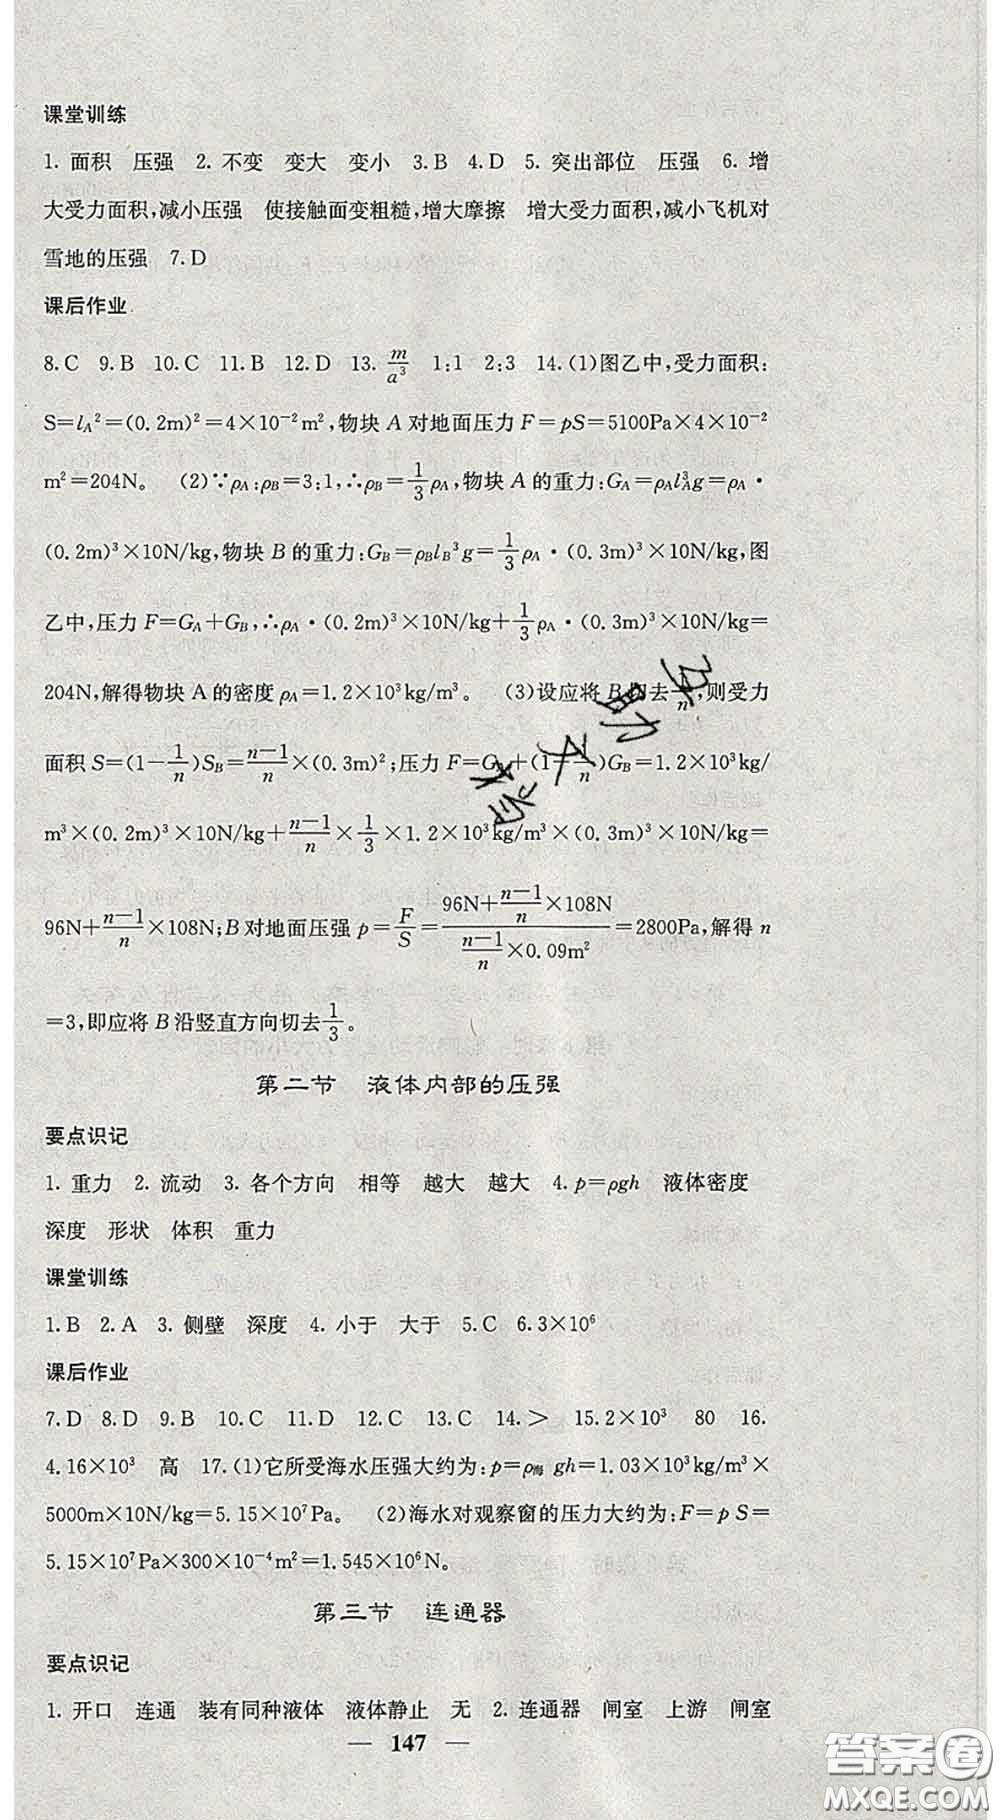 课堂训练
1. 面积　压强　2. 不变　变大　变小　3.B　4.D　5. 突出部位　压强　6. 增
大受力面积,减小压强　使接触面变粗糙,增大摩擦　增大受力面积,减小飞机对
雪地的压强　7.D
课后作业
8.C　9.B　10.C　11.B　12.D　13. m/a³　1∶1　2∶3　14.(1)图乙中,受力面积:
S=l_A²=(0.2m)²=4×10⁻²m²,物块 A 对地面压力 F=pS=5100Pa×4×10⁻²
m²=204N。　(2)∵ρ_A∶ρ_B=3∶1,∴ρ_B=1/3ρ_A,物块 A 的重力:G_A=ρ_A l_A³g=ρ_A·
(0.2m)³×10N/kg,物块 B 的重力:G_B=ρ_B l_B³g=1/3ρ_A·(0.3m)³×10N/kg,图
乙中,压力 F=G_A+G_B,∴ρ_A·(0.2m)³×10N/kg+1/3ρ_A·(0.3m)³×10N/kg=
204N,解得物块 A 的密度 ρ_A=1.2×10³kg/m³。　(3)设应将 B 切去 1/n,则受力
面积 S=(1−1/n)S_B=(n−1)/n×(0.3m)²;压力 F=G_A+(1−1/n)G_B=1.2×10³kg/
m³×(0.2m)³×10N/kg+(n−1)/n×1/3×1.2×10³kg/m³×(0.3m)³×10N/kg=
96N+(n−1)/n×108N;B 对地面压强 p=F/S=(96N+(n−1)/n×108N)/((n−1)/n×0.09m²)=2800Pa,解得 n
=3,即应将 B 沿竖直方向切去 1/3。
第二节　液体内部的压强
要点识记
1. 重力　2. 流动　3. 各个方向　相等　越大　越大　4. p=ρgh　液体密度
深度　形状　体积　重力
课堂训练
1.B　2.A　3. 侧壁　深度　4. 小于　大于　5.C　6.3×10⁶
课后作业
7.D　8.D　9.B　10.C　11.D　12.C　13.C　14.＞　15.2×10³　80　16.
4.16×10³　高　17.(1)它所受海水压强大约为:p=ρ海 gh=1.03×10³kg/m³×
5000m×10N/kg=5.15×10⁷Pa。　(2)海水对观察窗的压力大约为:F=p S=
5.15×10⁷Pa×300×10⁻⁴m²=1.545×10⁶N。
第三节　连通器
要点识记
1. 开口　连通　装有同种液体　液体静止　无　2. 连通器　闸室　上游　闸室
— 147 —
答案圈
MXQE.COM